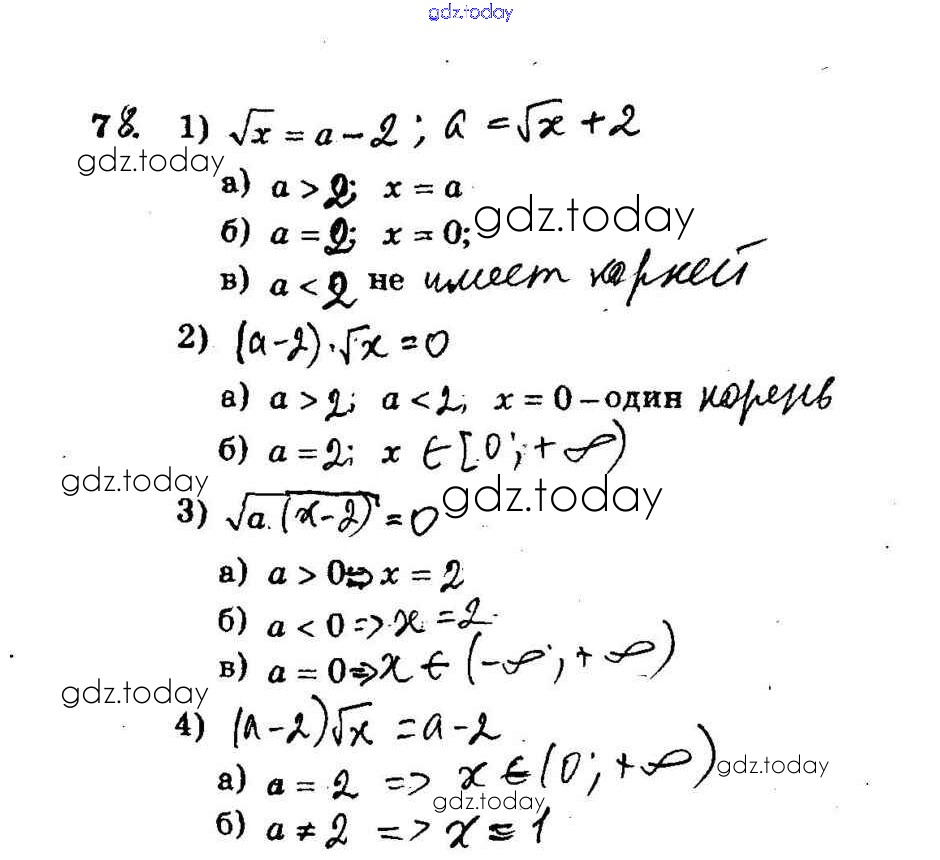 gdz.today
78. 1) √x = a – 2 ; a = √x + 2
gdz.today
а) a > 2; x = a
gdz.today
б) a = 2; x = 0;
в) a < 2 не имеет корней
2) (a-2)·√x = 0
а) a > 2; a < 2; x = 0 – один корень
б) a = 2; x ∈ [0; +∞)
gdz.today
gdz.today
3) √a·(x-2) = 0
а) a > 0 => x = 2
б) a < 0 => x = 2
в) a = 0 => x ∈ (-∞; +∞)
gdz.today
4) (a-2)√x = a-2
gdz.today
а) a = 2 => x ∈ (0; +∞)
gdz.today
б) a ≠ 2 => x = 1